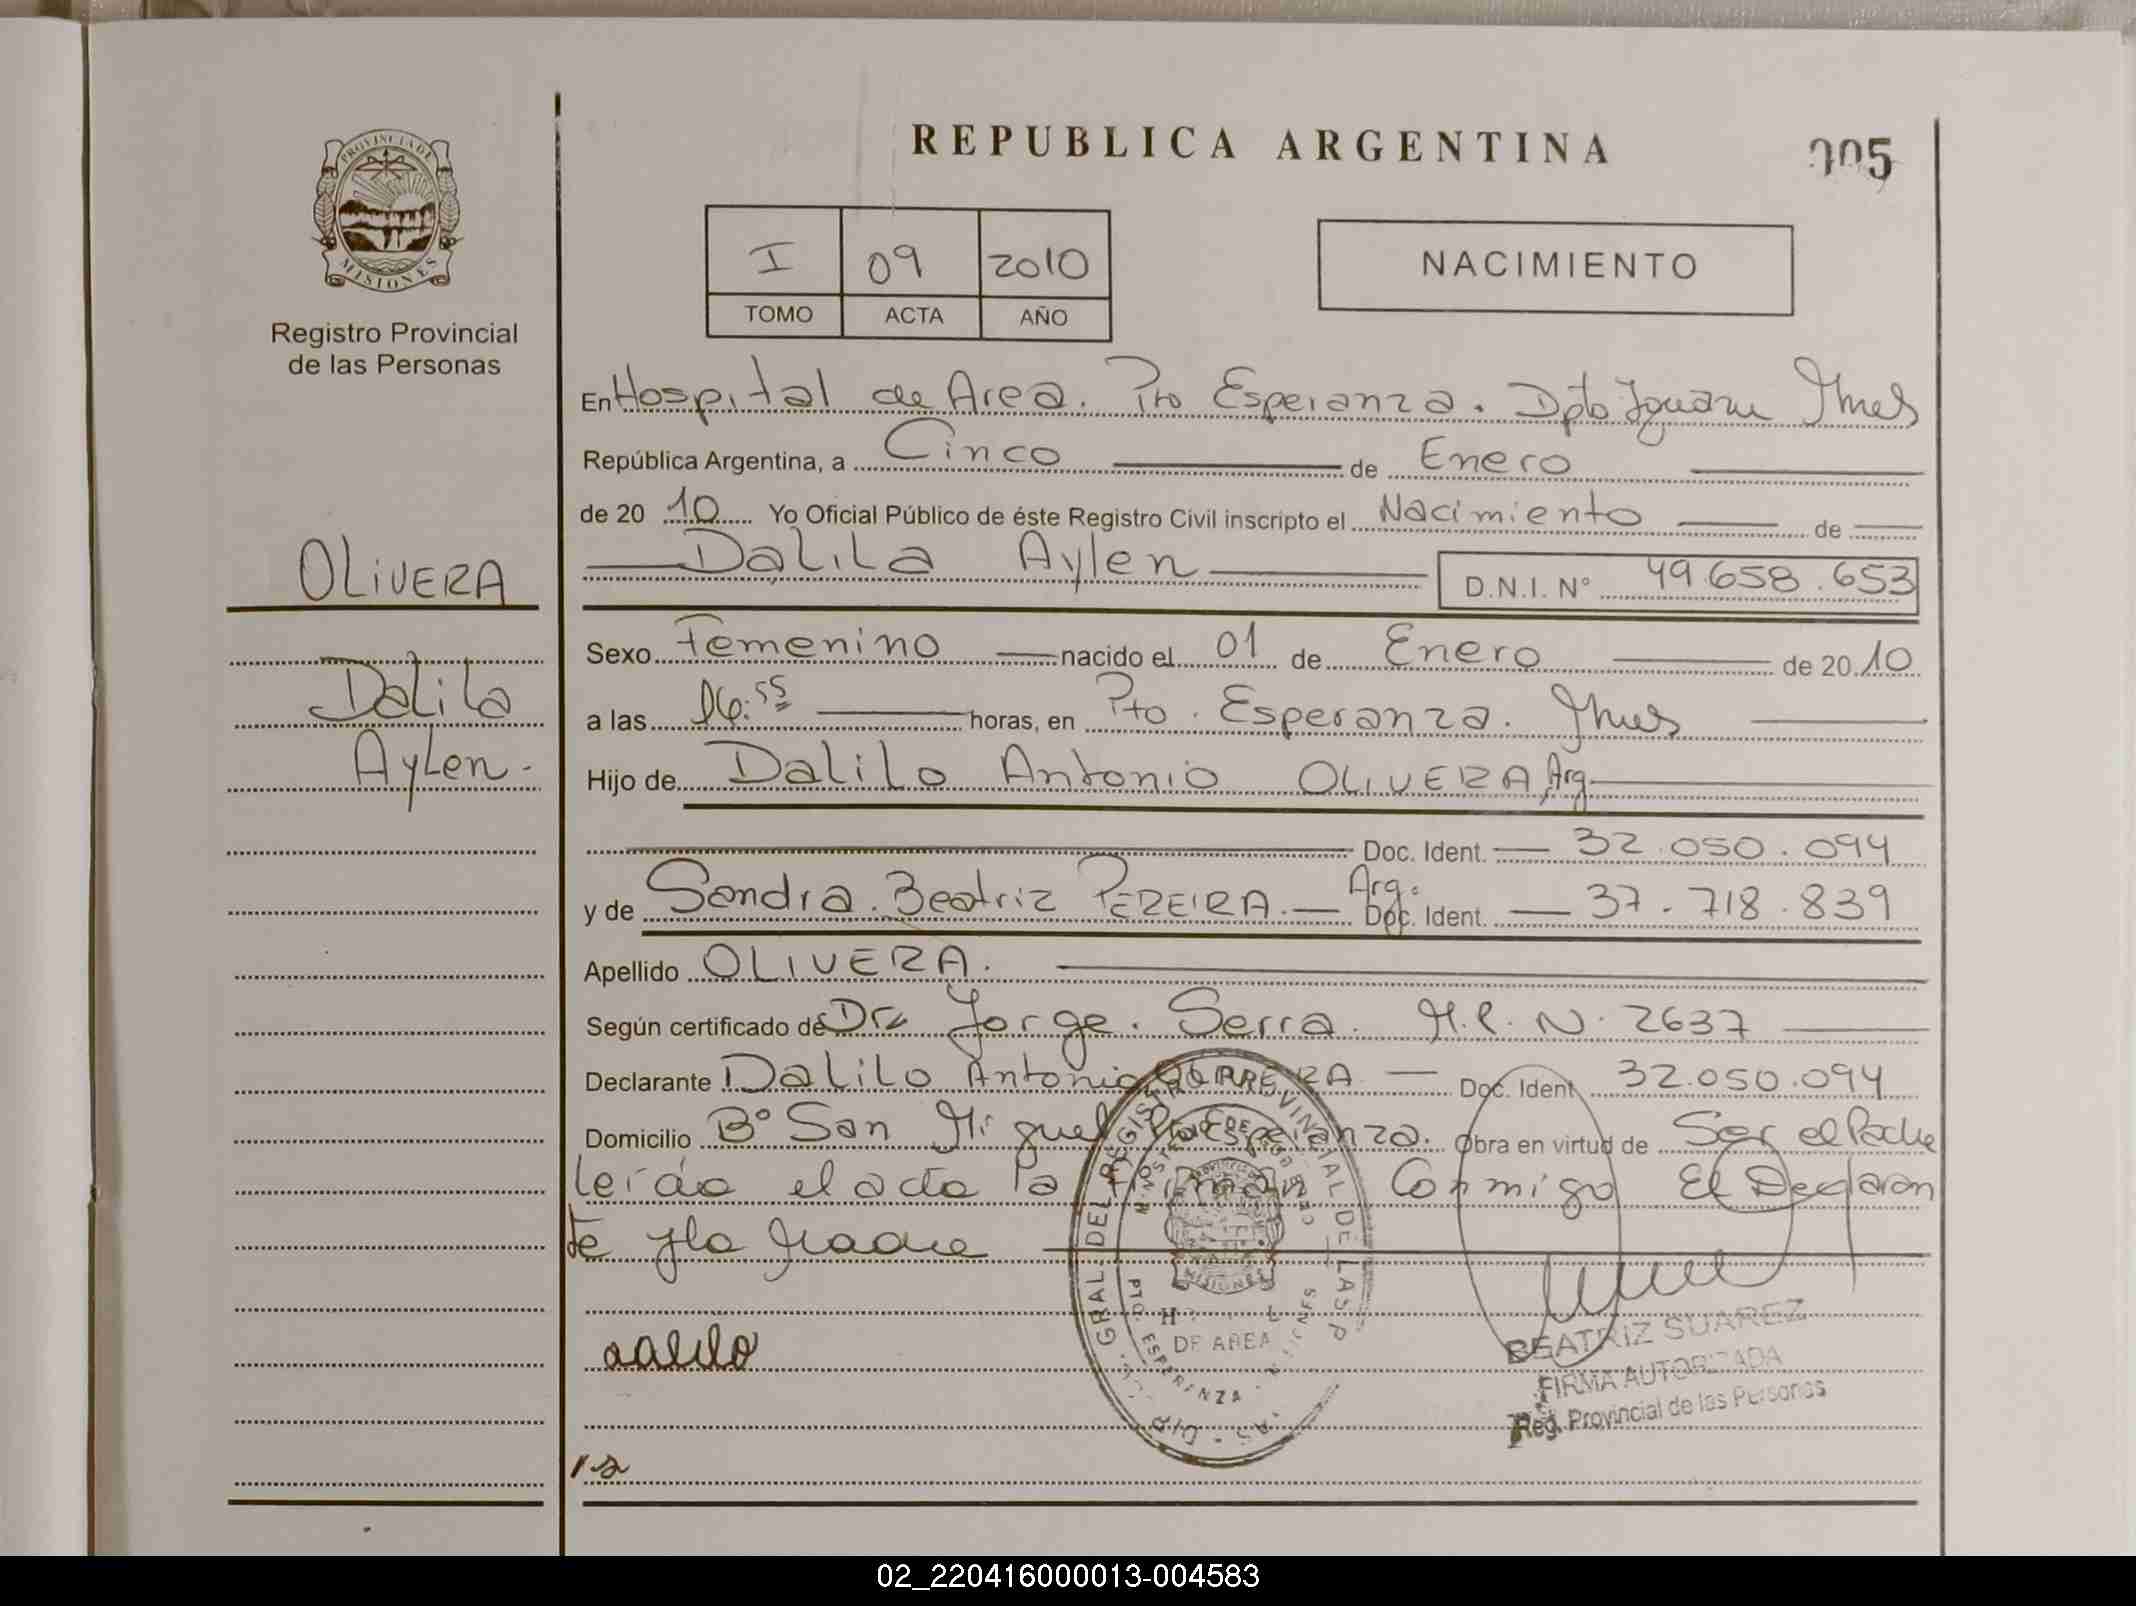 REPUBLICA ARGENTINA
005
PROVINCIA DE
MISIONES
Registro Provincial
de las Personas
I 09 2010
TOMO ACTA AÑO
NACIMIENTO
En Hospital de Area. Pto Esperanza. Dpto Iguazu Mnes
República Argentina, a Cinco de Enero
de 20 10 Yo Oficial Público de éste Registro Civil inscripto el Nacimiento de
Dalila Aylen D.N.I. Nº 49.658.653
OLIVERA
Dalila
Aylen.
Sexo Femenino nacido el 01 de Enero de 20 10
a las 16:55 horas, en Pto. Esperanza. Mnes
Hijo de Dalilo Antonio OLIVERA, Arg.
Doc. Ident. 32.050.094
y de Sandra Beatriz PEREIRA. Arg. Doc. Ident. 37.718.839
Apellido OLIVERA.
Según certificado de Dr. Jorge. Serra. M.P. N. 2637
Declarante Dalilo Antonio Doc. Ident 32.050.094
Domicilio Bº San Miguel Pto Esperanza. Obra en virtud de Ser el Padre
leída el acta la Conmigo El Declaran
te y la Madre
DIR. GRAL. DEL REGISTRO PROVINCIAL DE LAS P
MINISTERIO DE GOBIERNO
MISIONES
DE AREA
PTO. ESPERANZA
Dalilo
BEATRIZ SUAREZ
FIRMA AUTORIZADA
Reg. Provincial de las Personas
02_220416000013-004583